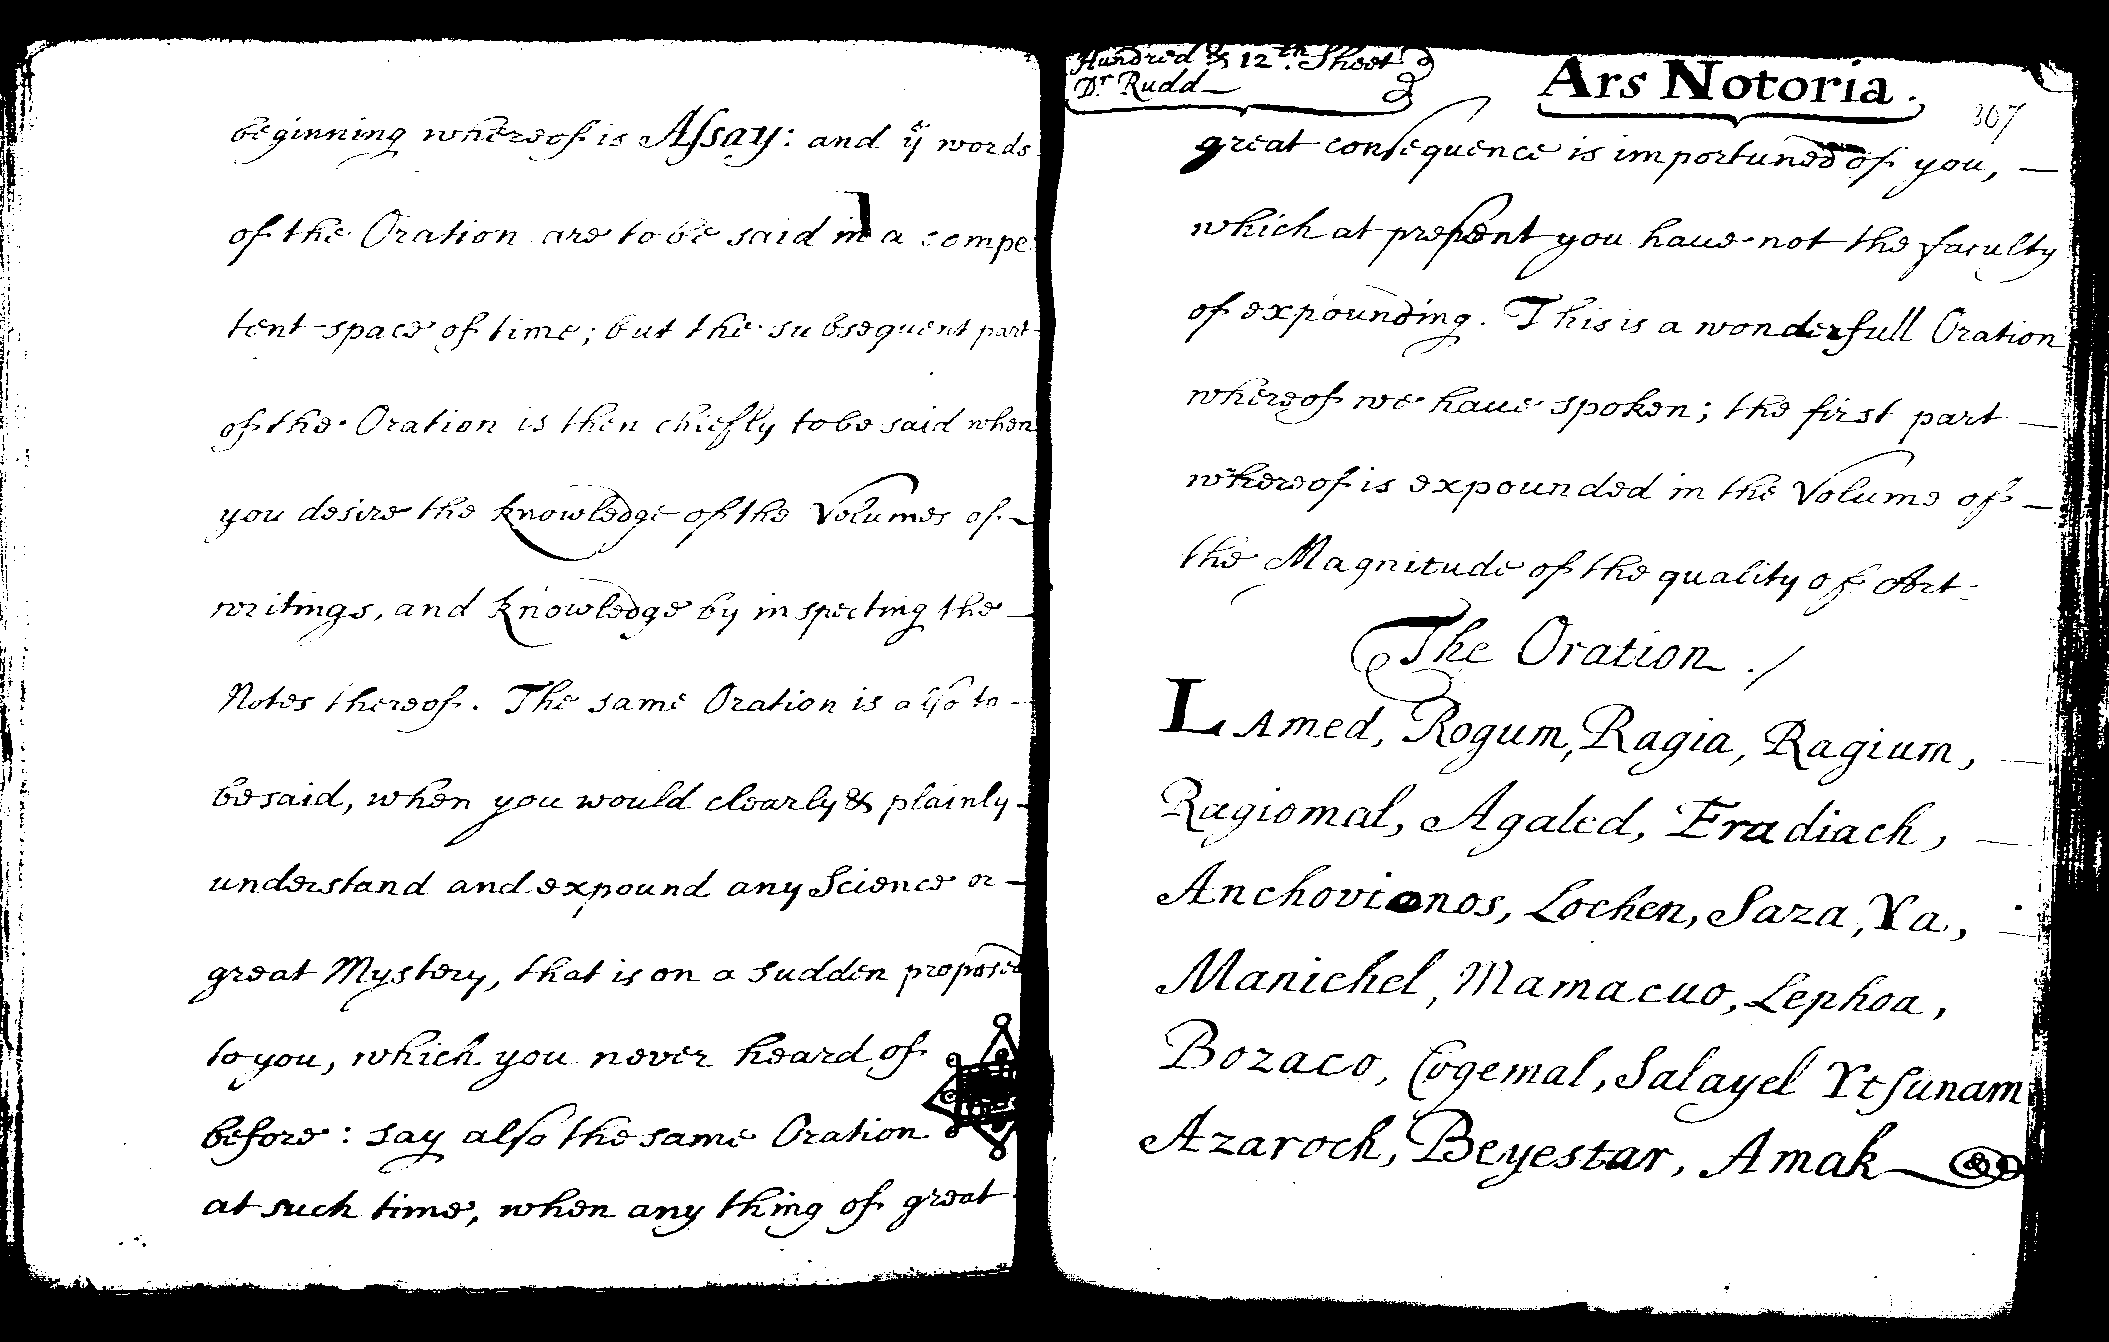 beginning whereof is Aſsay: and yͤ words
of the Oration are to be said in a compe
tent space of time; but the subsequent part
of the Oration is then chiefly to be said when
you desire the knowledge of the Volumes of
writings, and knowledge by inspecting the
Notes thereof. The same Oration is alſo to
be said, when you would clearly & plainly
understand and expound any Science or
great Mystery, that is on a sudden proposed
to you, which you never heard of
before: say alſo the same Oration
at such time, when any thing of great
Hundred & 12th. Sheet
Dr Rudd
Ars Notoria.
307
great conſequence is importuned of you,
which at preſent you haue not the faculty
of expounding. This is a wonderfull Oration
whereof we haue spoken; the first part
whereof is expounded in the Volume of
the Magnitude of the quality of Art.
The Oration ./
LAmed, Rogum, Ragia, Ragium,
Ragiomal, Agaled, Eradiach,
Anchovionos, Lochen, Saza, Ya,
Manichel, Mamacuo, Lephoa,
Bozaco, Cogemal, Salayel Ytſunam
Azaroch, Beyestar, Amak